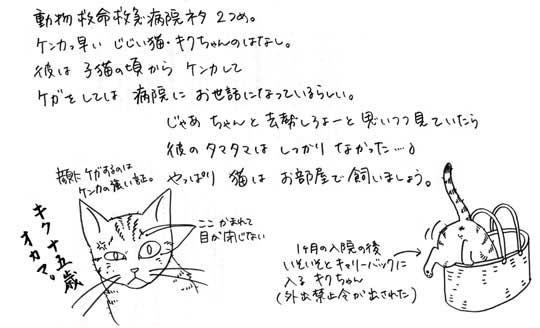 動物救命救急病院ネタ 2つめ。
ケンカっ早い じじい猫・キクちゃんのはなし。
彼は 子猫の頃から ケンカして
ケガをしては 病院に お世話になっているらしい。
じゃあ ちゃんと去勢しろよーと 思いつつ見ていたら
彼のタマタマは しっかり なかった…。
やっぱり 猫は お部屋で 飼いましょう。
顔にケガするのは
ケンカの強い証。
キク十五歳
オカマ。
ここ かまれて
目が閉じない
1ヶ月の入院の後
いそいそとキャリーバックに
入る キクちゃん
(外出禁止令が出された)